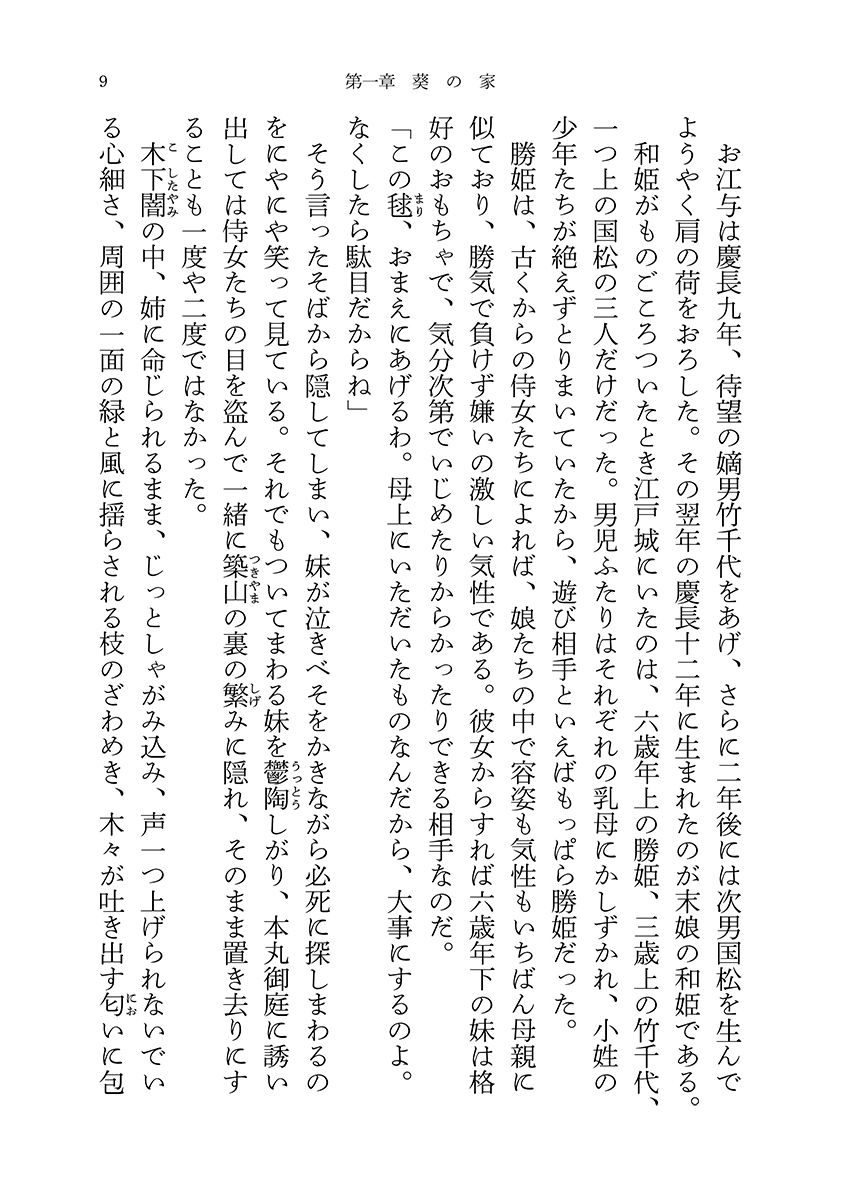 9
第一章 葵の家
お江与は慶長九年、待望の嫡男竹千代をあげ、さらに二年後には次男国松を生んで
ようやく肩の荷をおろした。その翌年の慶長十二年に生まれたのが末娘の和姫である。
和姫がものごころついたとき江戸城にいたのは、六歳年上の勝姫、三歳上の竹千代、
一つ上の国松の三人だけだった。男児ふたりはそれぞれの乳母にかしずかれ、小姓の
少年たちが絶えずとりまいていたから、遊び相手といえばもっぱら勝姫だった。
勝姫は、古くからの侍女たちによれば、娘たちの中で容姿も気性もいちばん母親に
似ており、勝気で負けず嫌いの激しい気性である。彼女からすれば六歳年下の妹は格
好のおもちゃで、気分次第でいじめたりからかったりできる相手なのだ。
「この毬、おまえにあげるわ。母上にいただいたものなんだから、大事にするのよ。
なくしたら駄目だからね」
そう言ったそばから隠してしまい、妹が泣きべそをかきながら必死に探しまわるの
をにやにや笑って見ている。それでもついてまわる妹を鬱陶しがり、本丸御庭に誘い
出しては侍女たちの目を盗んで一緒に築山の裏の繁みに隠れ、そのまま置き去りにす
ることも一度や二度ではなかった。
木下闇の中、姉に命じられるまま、じっとしゃがみ込み、声一つ上げられないでい
る心細さ、周囲の一面の緑と風に揺らされる枝のざわめき、木々が吐き出す匂いに包